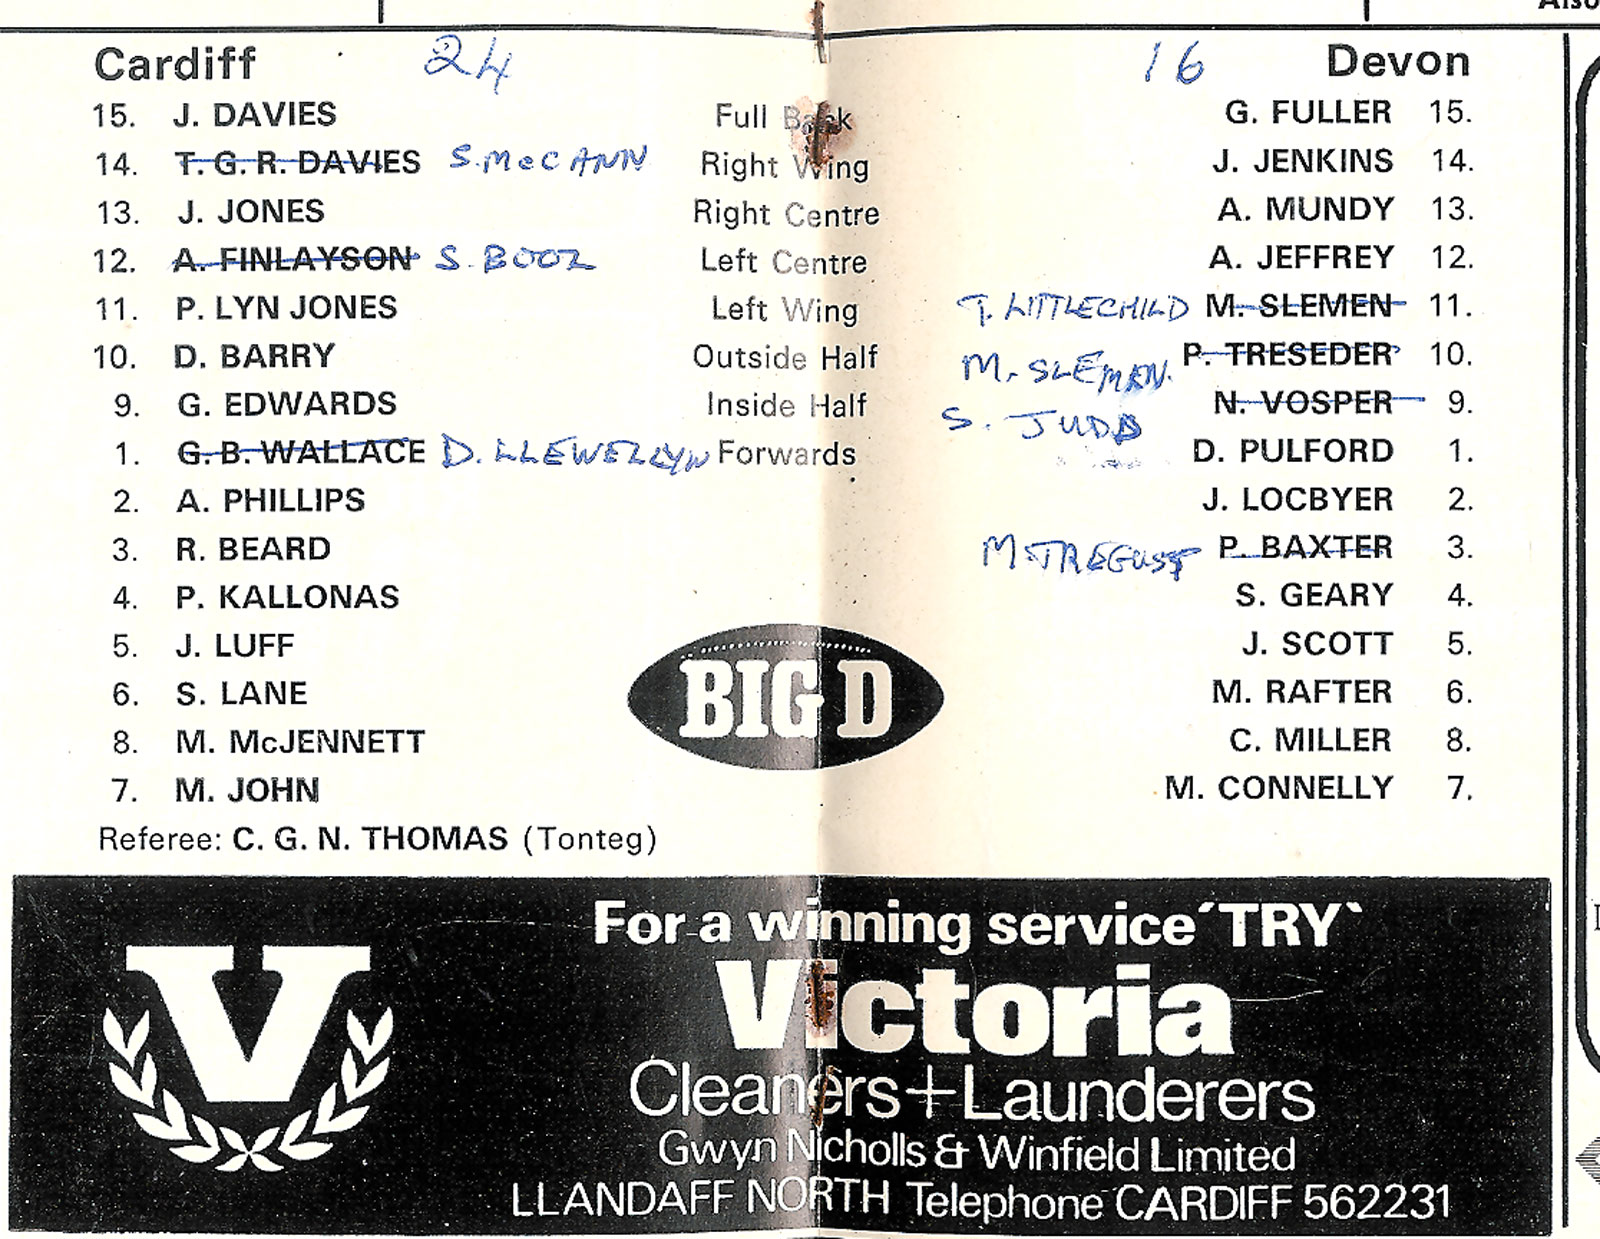 Also
Cardiff 24 16 Devon
15. J. DAVIES Full Back G. FULLER 15.
14. T. G. R. DAVIES S. McCANN Right Wing J. JENKINS 14.
13. J. JONES Right Centre A. MUNDY 13.
12. A. FINLAYSON S. BOOZ Left Centre A. JEFFREY 12.
11. P. LYN JONES Left Wing T. LITTLECHILD M. SLEMEN 11.
10. D. BARRY Outside Half M. SLEMEN. P. TRESEDER 10.
9. G. EDWARDS Inside Half S. JUDD N. VOSPER 9.
1. G. B. WALLACE D. LLEWELLYN Forwards D. PULFORD 1.
2. A. PHILLIPS J. LOCBYER 2.
3. R. BEARD M. TREGUST P. BAXTER 3.
4. P. KALLONAS S. GEARY 4.
5. J. LUFF J. SCOTT 5.
6. S. LANE M. RAFTER 6.
8. M. McJENNETT C. MILLER 8.
7. M. JOHN M. CONNELLY 7.
BIG D
Referee: C. G. N. THOMAS (Tonteg)
V
For a winning service 'TRY'
Victoria
Cleaners+Launderers
Gwyn Nicholls & Winfield Limited
LLANDAFF NORTH Telephone CARDIFF 562231